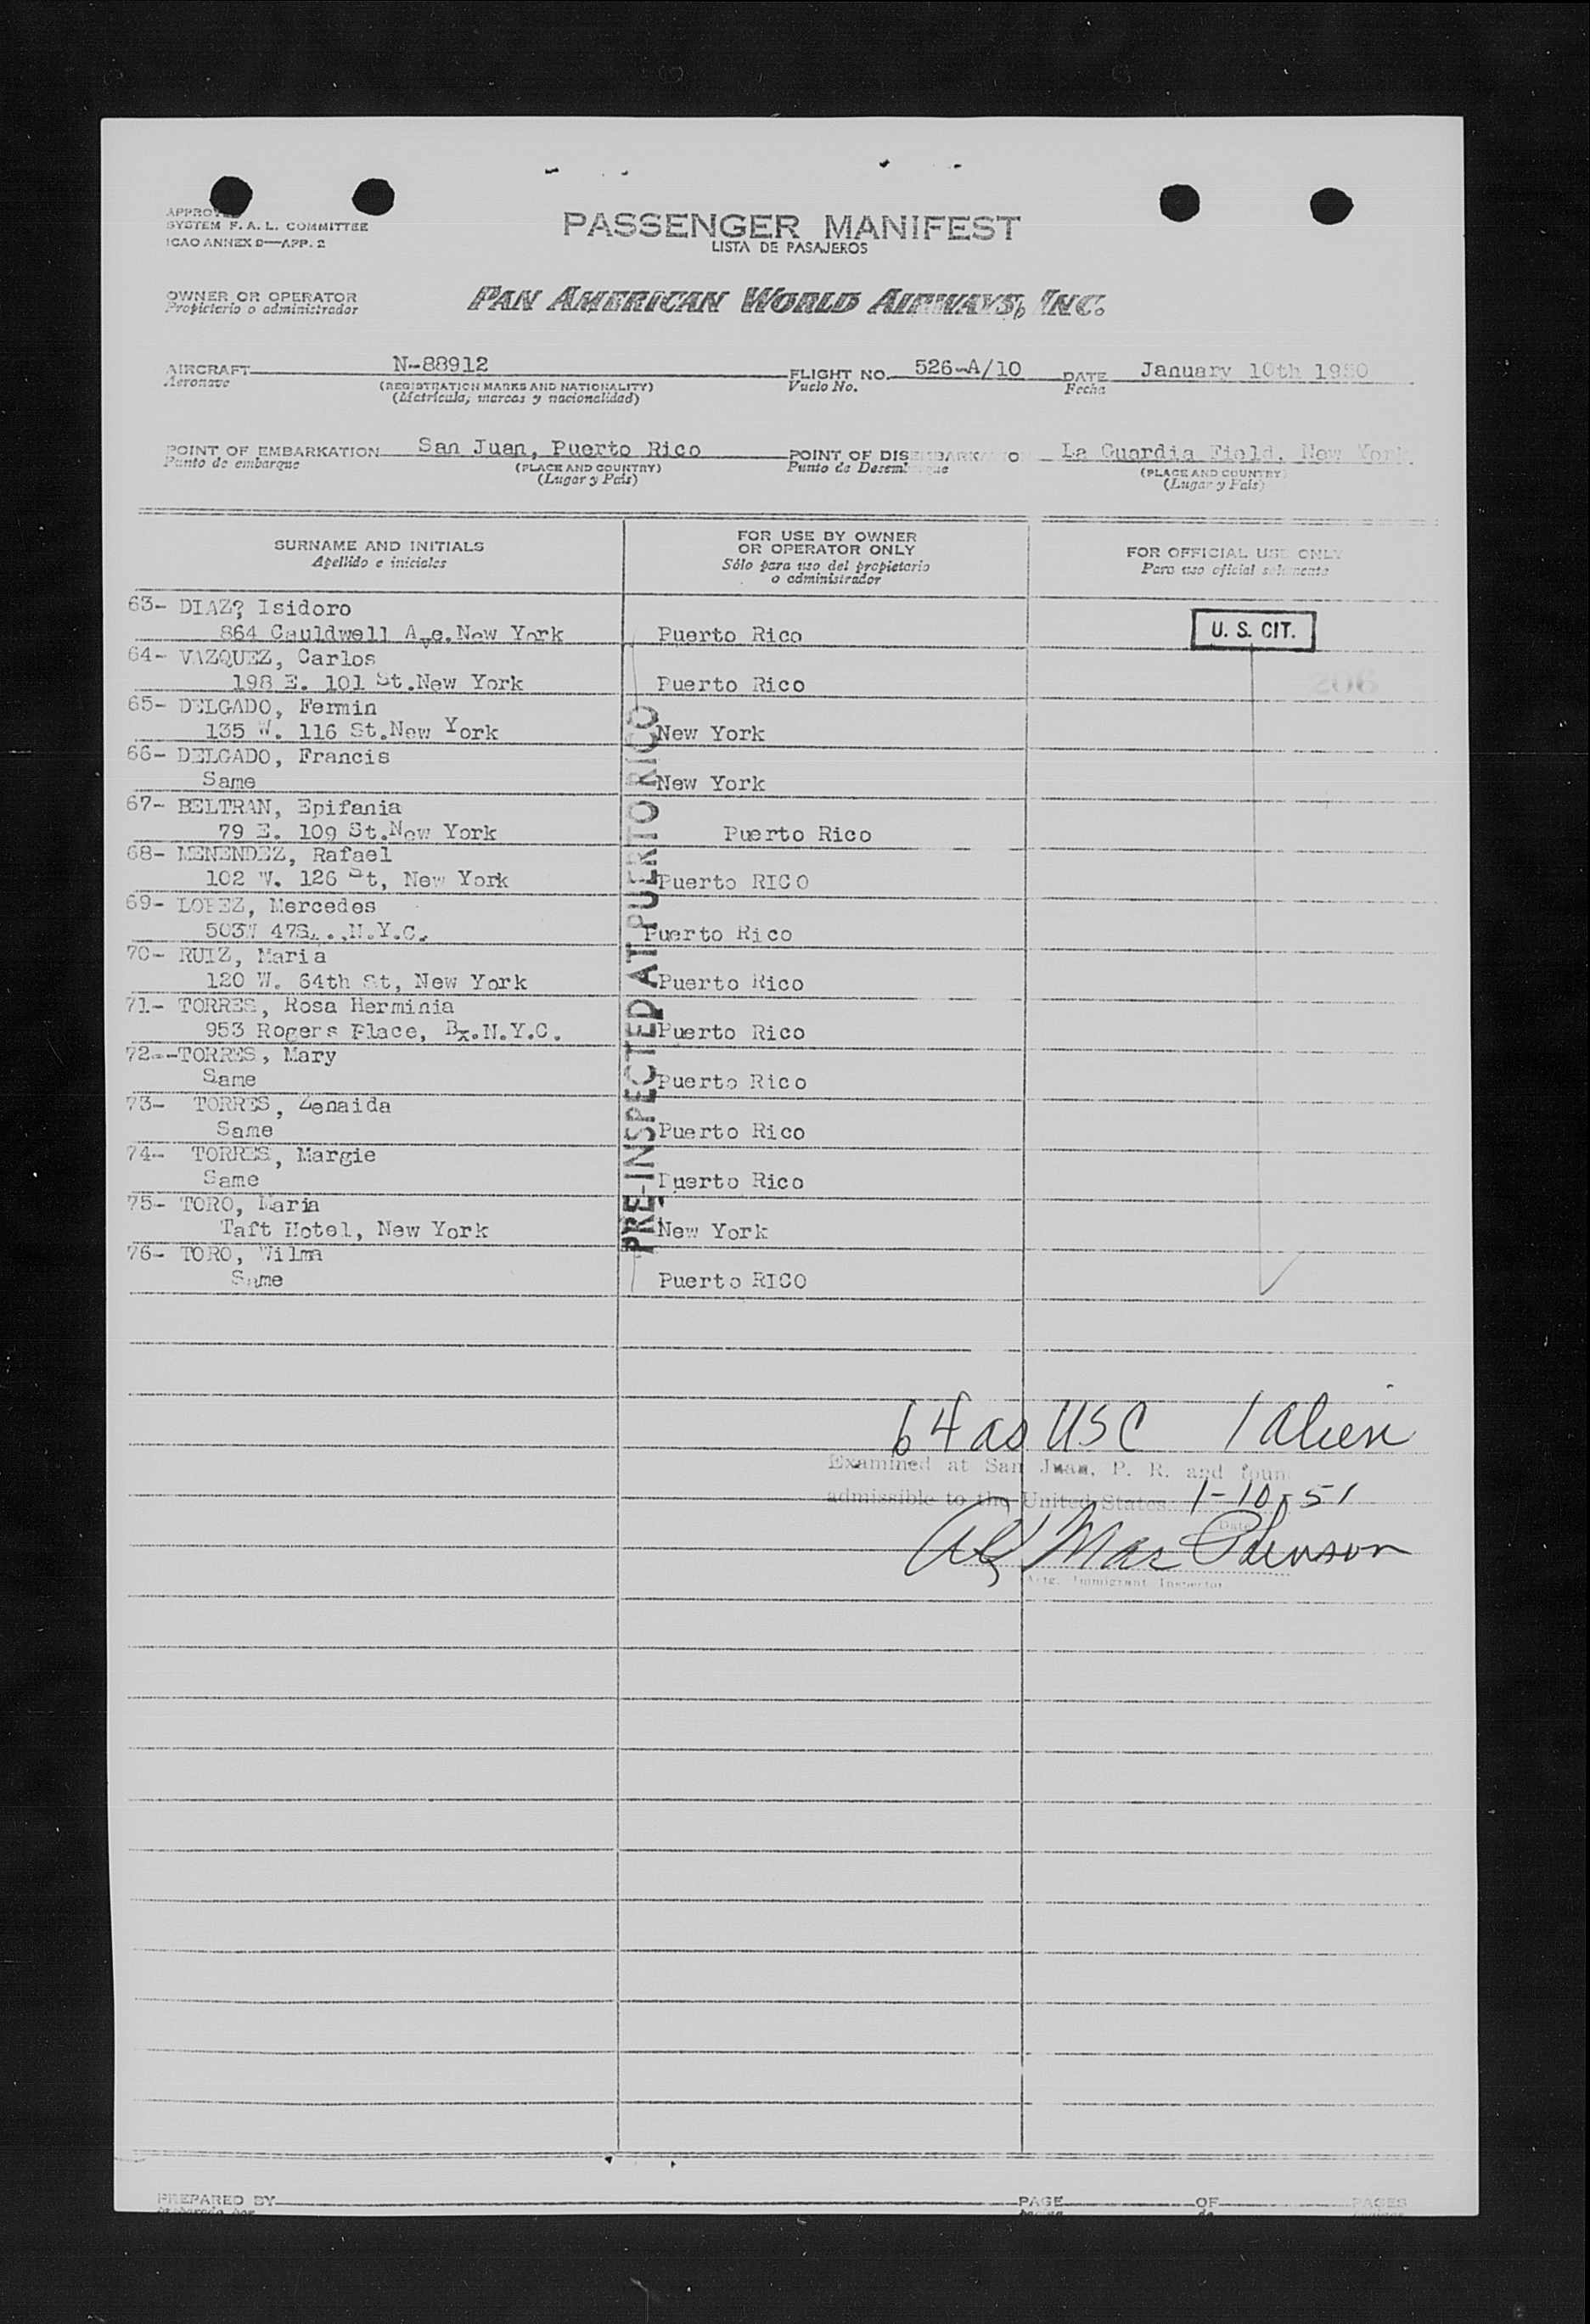 SYSTEM F. A. L. COMMITTEE
ICAO ANNEX 9—APP. 2
PASSENGER MANIFEST
LISTA DE PASAJEROS
OWNER OR OPERATOR
Propietario o administrador
PAN AMERICAN WORLD AIRWAYS, INC.
AIRCRAFT N-88912 FLIGHT NO. 526-A/10 DATE January 10th 1950
Aeronave (REGISTRATION MARKS AND NATIONALITY) Vuelo No. Fecha
(Matrícula, marcas y nacionalidad)
POINT OF EMBARKATION San Juan, Puerto Rico POINT OF DISEMBARKATIO La Guardia Field, New York
Punto de embarque (PLACE AND COUNTRY) Punto de (PLACE AND COUNTRY)
(Lugar y País) (Lugar y País)
SURNAME AND INITIALS
Apellido e iniciales
FOR USE BY OWNER
OR OPERATOR ONLY
Sólo para uso del propietario
o administrador
FOR OFFICIAL USE ONLY
Para uso oficial solamente
63- DIAZ? Isidoro
864 Cauldwell Ave. New York Puerto Rico U. S. CIT.
64- VAZQUEZ, Carlos
198 E. 101 St. New York Puerto Rico 206
65- DELGADO, Fermin
135 W. 116 St. New York New York
66- DELGADO, Francis
Same New York
67- BELTRAN, Epifania
79 E. 109 St. New York Puerto Rico
68- MENENDEZ, Rafael
102 W. 126 St, New York Puerto RICO
69- LOPEZ, Mercedes
503W 47S N.Y.C. Puerto Rico
70- RUIZ, Maria
120 W. 64th St, New York Puerto Rico
71- TORRES, Rosa Herminia
953 Rogers Place, Bx. N.Y.C. Puerto Rico
72--TORRES, Mary
Same Puerto Rico
73- TORRES, Zenaida
Same Puerto Rico
74- TORRES, Margie
Same Puerto Rico
75- TORO, Maria
Taft Hotel, New York New York
76- TORO, Wilma
Same Puerto RICO
PRE-INSPECTED AT PUERTO RICO
64 as USC 1 alien
Examined at San Juan, P. R. and foun
admissible to the United States 1-10-51
Date
Immigrant Inspector
PREPARED BY PAGE OF PAGES